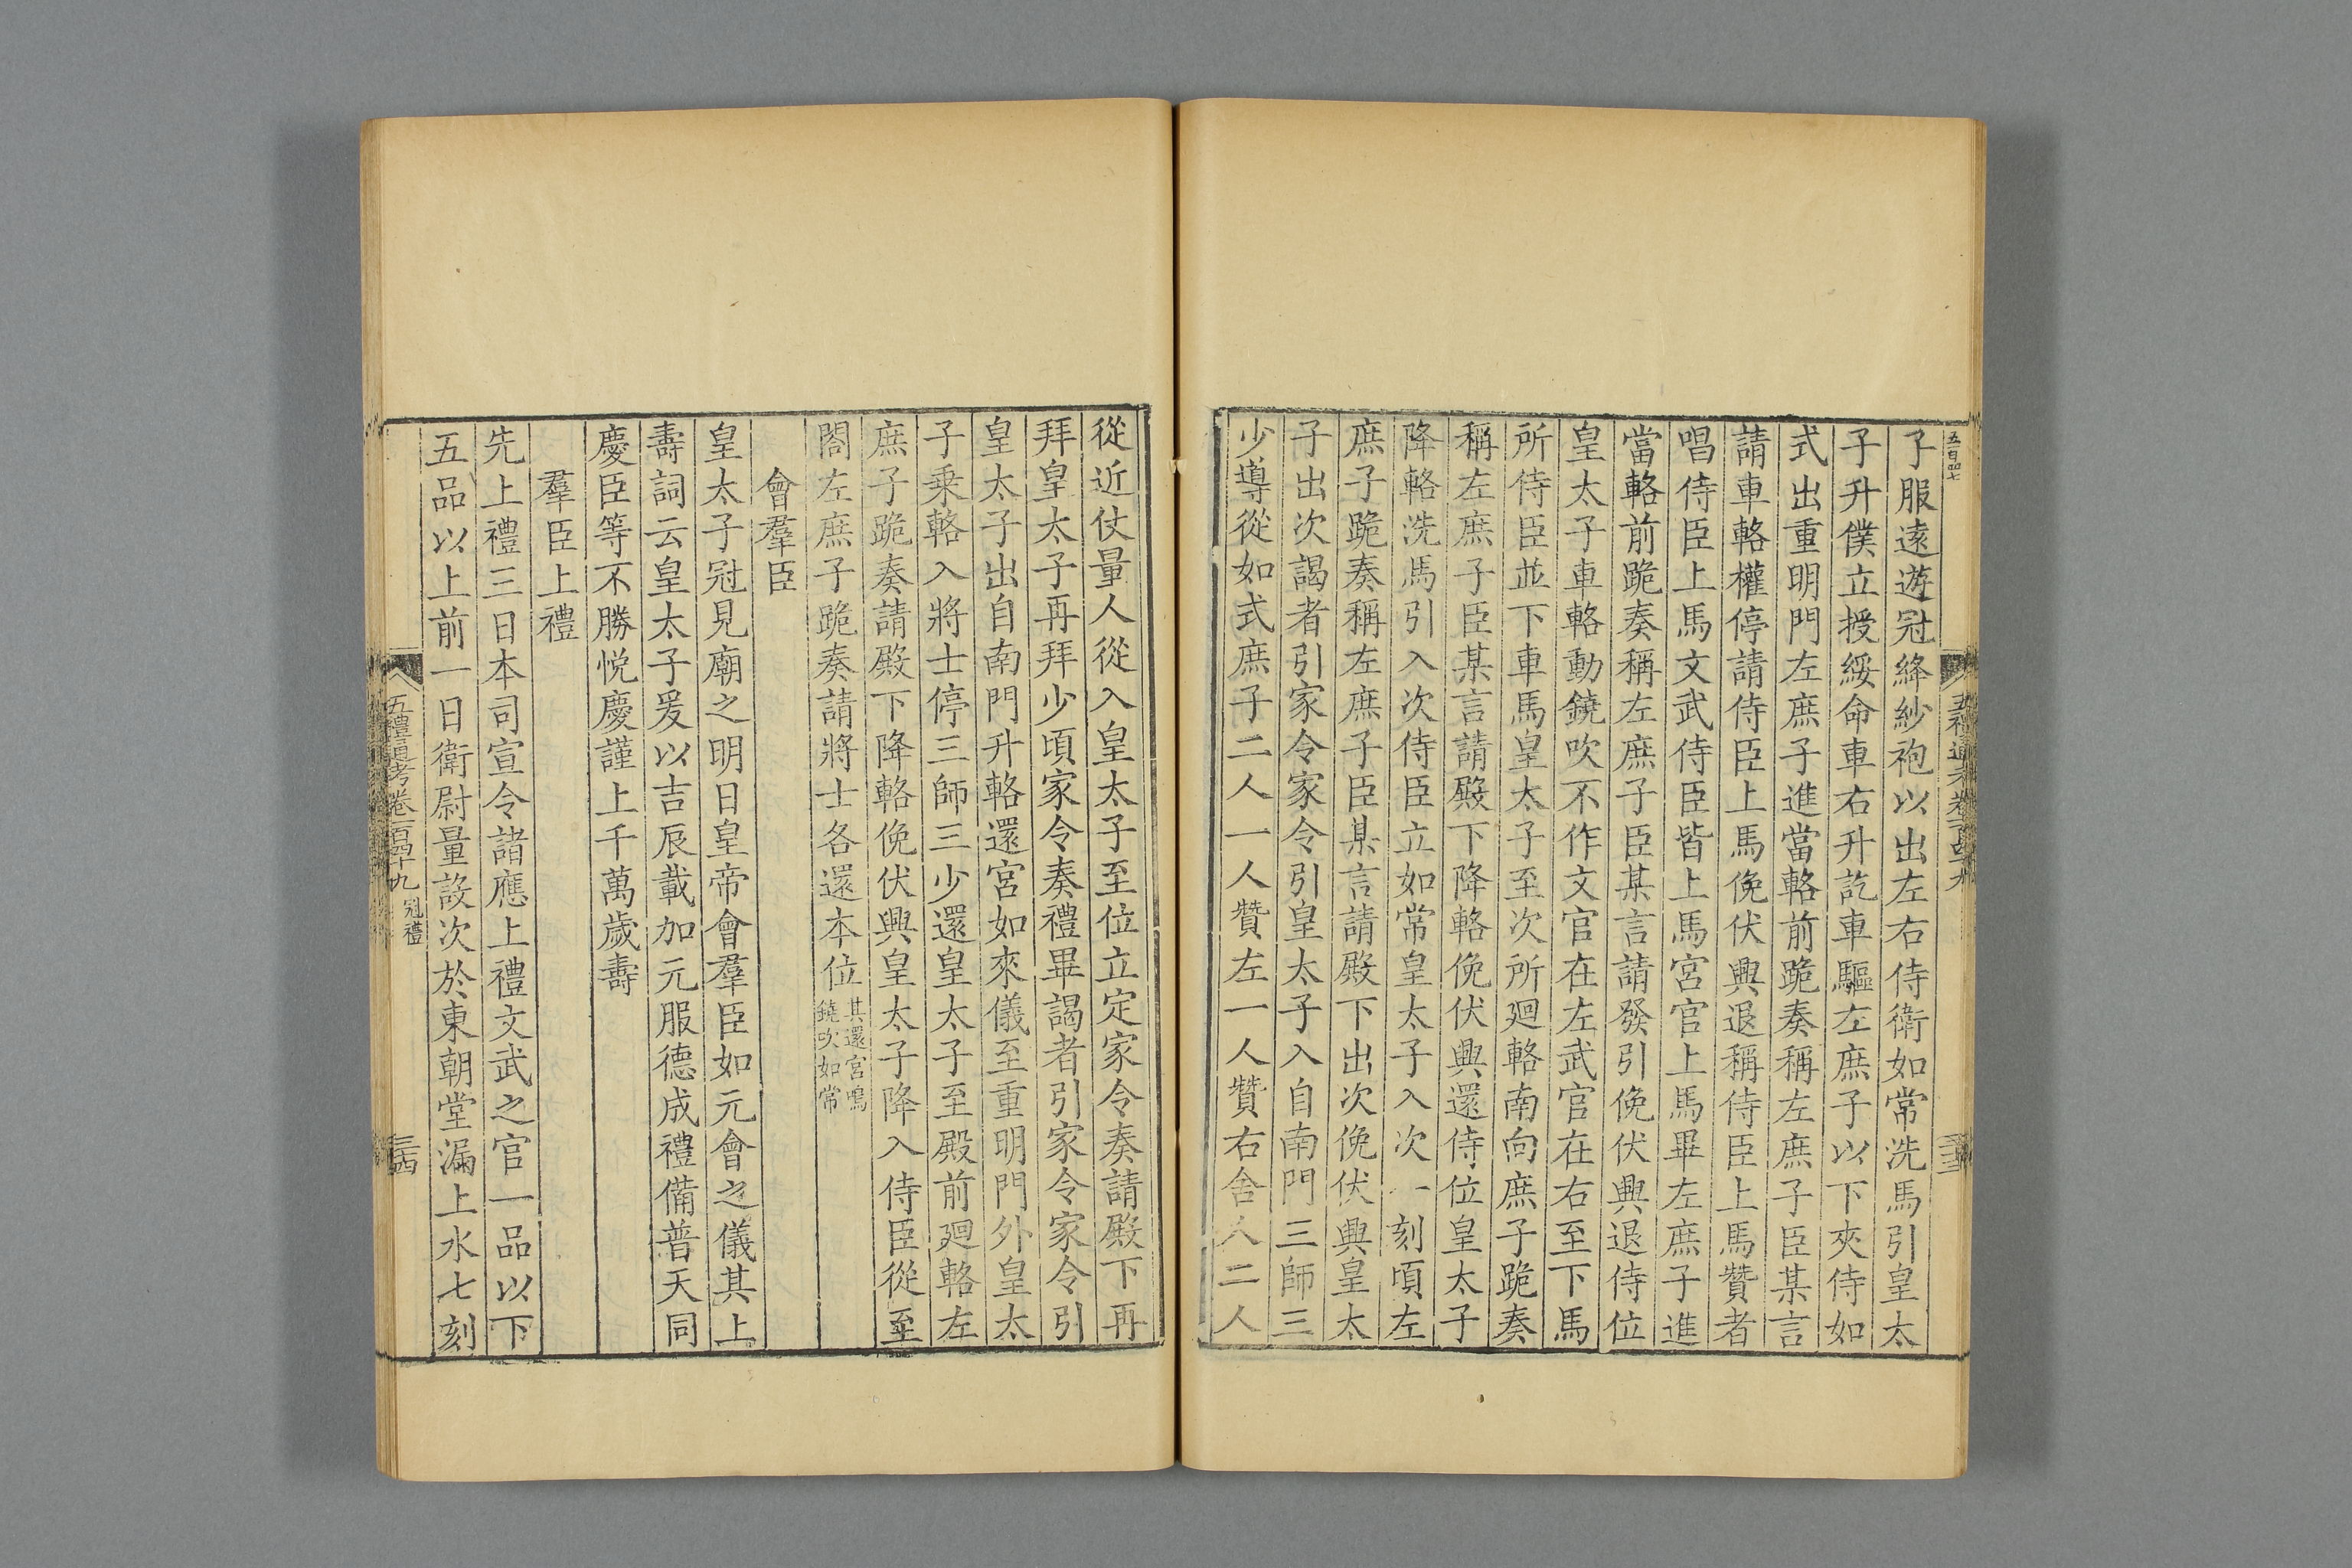 五百四七
子服遠遊冠絳紗袍以出左右侍衛如常洗馬引皇太
子升僕立授綏命車右升訖車驅左庶子以下夾侍如
式出重明門左庶子進當輅前跪奏稱左庶子臣某言
請車輅權停請侍臣上馬俛伏興退稱侍臣上馬贊者
唱侍臣上馬文武侍臣皆上馬宮官上馬畢左庶子進
當輅前跪奏稱左庶子臣某言請發引俛伏興退侍位
皇太子車輅動鐃吹不作文官在左武官在右至下馬
所侍臣並下車馬皇太子至次所廻輅南向庶子跪奏
稱左庶子臣某言請殿下降輅俛伏興還侍位皇太子
降輅洗馬引入次侍臣立如常皇太子入次一刻頃左
庶子跪奏稱左庶子臣某言請殿下出次俛伏興皇太
子出次謁者引家令家令引皇太子入自南門三師三
少導從如式庶子二人一人贊左一人贊右舍人二人
從近仗量人從入皇太子至位立定家令奏請殿下再
拜皇太子再拜少頃家令奏禮畢謁者引家令家令引
皇太子出自南門升輅還宮如來儀至重明門外皇太
子乗輅入將士停三師三少還皇太子至殿前廻輅左
庶子跪奏請殿下降輅俛伏興皇太子降入侍臣從至
閤左庶子跪奏請將士各還本位其還宮鳴鐃吹如常
會羣臣
皇太子冠見廟之明日皇帝會羣臣如元會之儀其上
壽詞云皇太子爰以吉辰載加元服德成禮備普天同
慶臣等不勝悅慶謹上千萬歲壽
羣臣上禮
先上禮三日本司宣令諸應上禮文武之官一品以下
五品以上前一日衛尉量設次於東朝堂漏上水七刻
五禮通考卷一百四十九 冠禮
三四